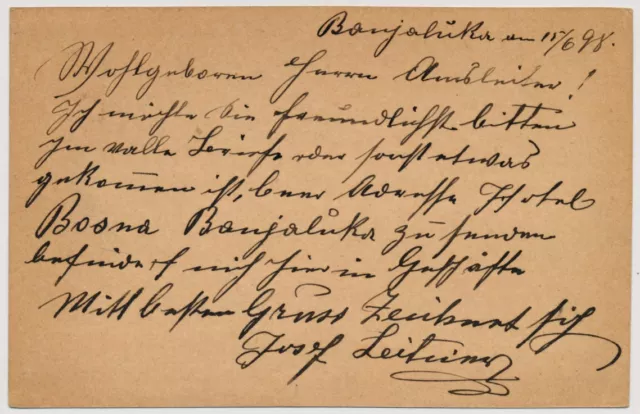 Banjalŭka am 15/6 98.
Wohlgeboren Herrn Amsleiter!
Ich möchte Sie freundlichst bitten
Im valle Briefe oder sonst etwas
gekom̄en ist, Adresse Hotel
Bosna Banjalŭka zu senden
befindet mich hier in Geschäfte
Mitt besten Gruss Zeichnet sich
Josef Leitner